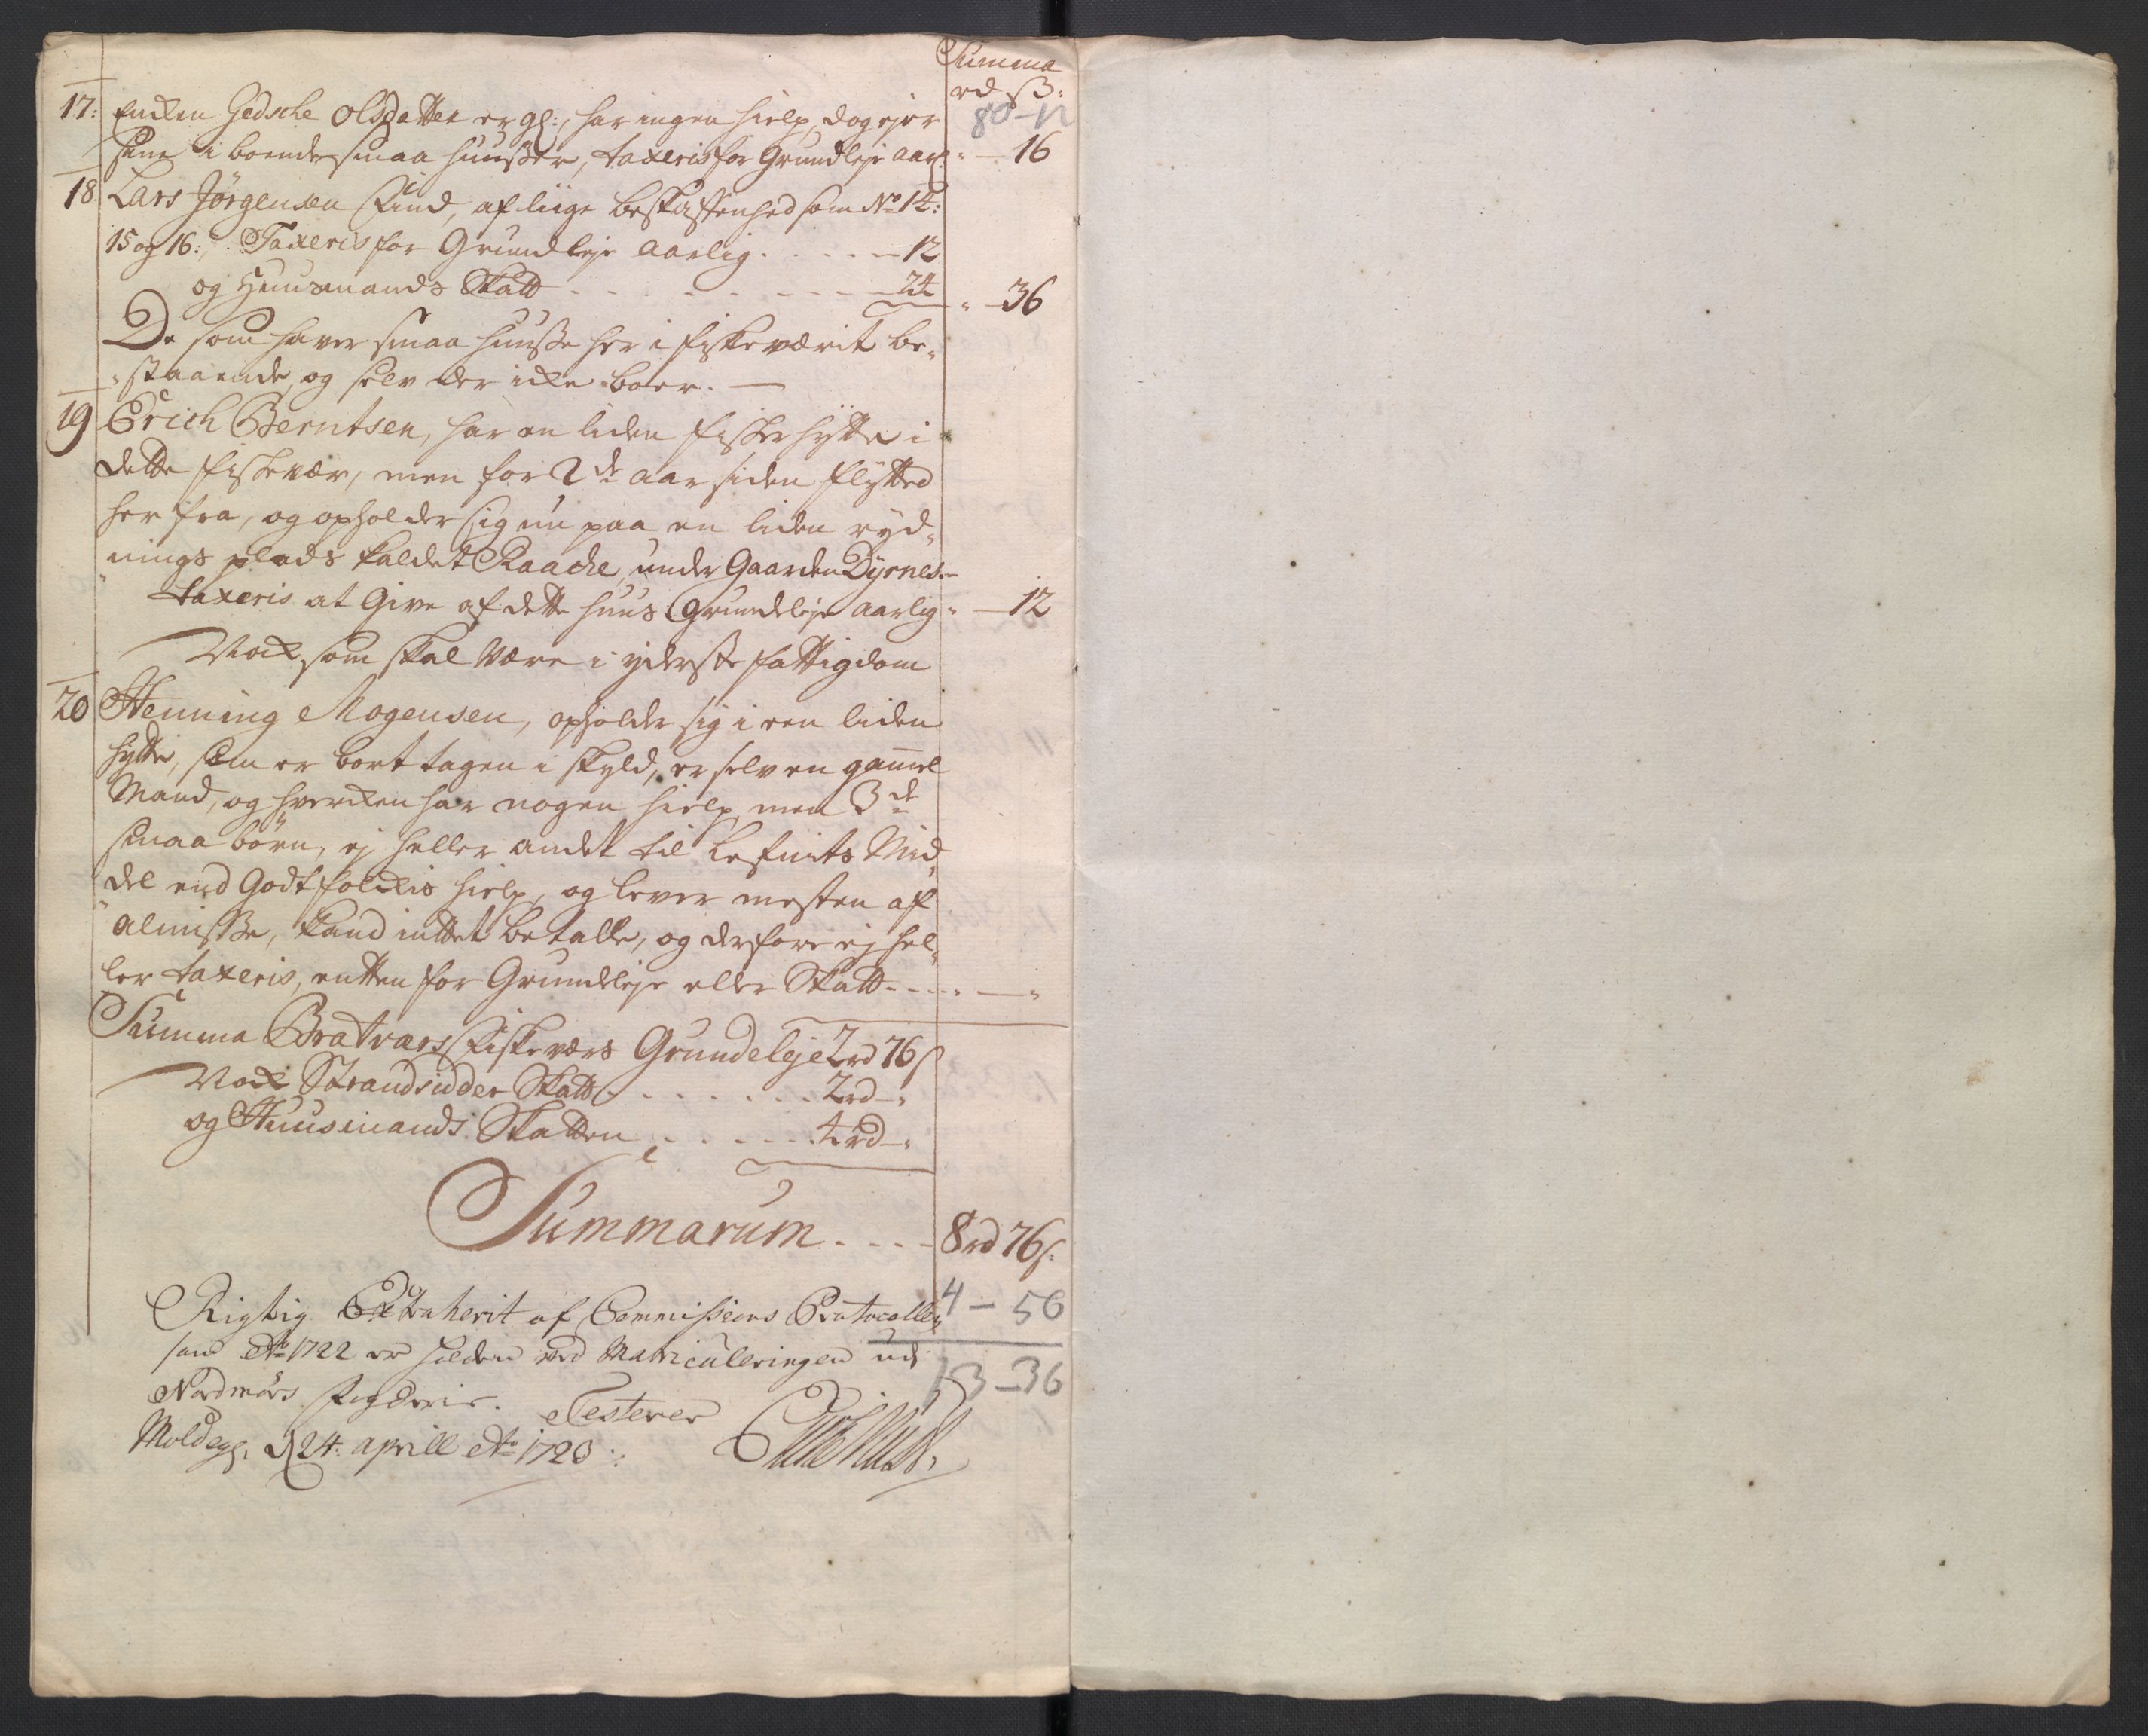 Summa
rd ß:
80-12
17: Encken Gedsche Olsdatter er gl:, har ingen hielp, dog ejer
sine i boende smaa huusser, taxeris for Grundleje aarl: " — 16
18 Lars Jörgensen Find, af liige beskaffenhed som No 14:
15 og 16:, Taxeris for Grundleje aarlig . . . . . 12
og Huusmands Skatt . . . . . . 24 " — 36
De som haver smaa huusse her i fiskeværit be„
„staaende, og selv der icke boer. —
19 Erich Berntsen, har en liden fisker hytte i
dette fiskevær, men for 2de aar siden flytted
her fra, og opholder sig nu paa en liden ryd„
„nings plads kaldet Raache, under Gaarden Dyrnes.—
taxeris at Give af dette huus Grundeleje aarlig " — 12
Nock som skal være i yderste fattigdom
20 Henning Mogensen, opholder sig i een liden
hytte, som er bort tagen i skyld, er selv en gammel
Mand, og hvercken har nogen hielp, men 3de
smaa börn, ej heller andet til Lefnits Mid„
del end Godtfolckis hielp, og lever mesten af
almisse, kand inttet betalle, og derfore ej hel„
ler taxeris, entten for Grundleje eller Skatt - - - " — "
Summa Bratvars Fiskeværs Grundeleje 2rd 76ß
Nock Strandsidder Skatt . . . . . . . 2rd — "
og Huusmands Skatten . . . . . 4rd — "
Summarum . . . . 8rd 76ß:
4 — 56
13 — 36
Rigtig Extraherit af Commissions Protocollen
som Ao 1722 er holden ved Matriculeringen udi
Nordmörs Fogderie. Testerer
Molde, d 24: aprill Ao 1723 :